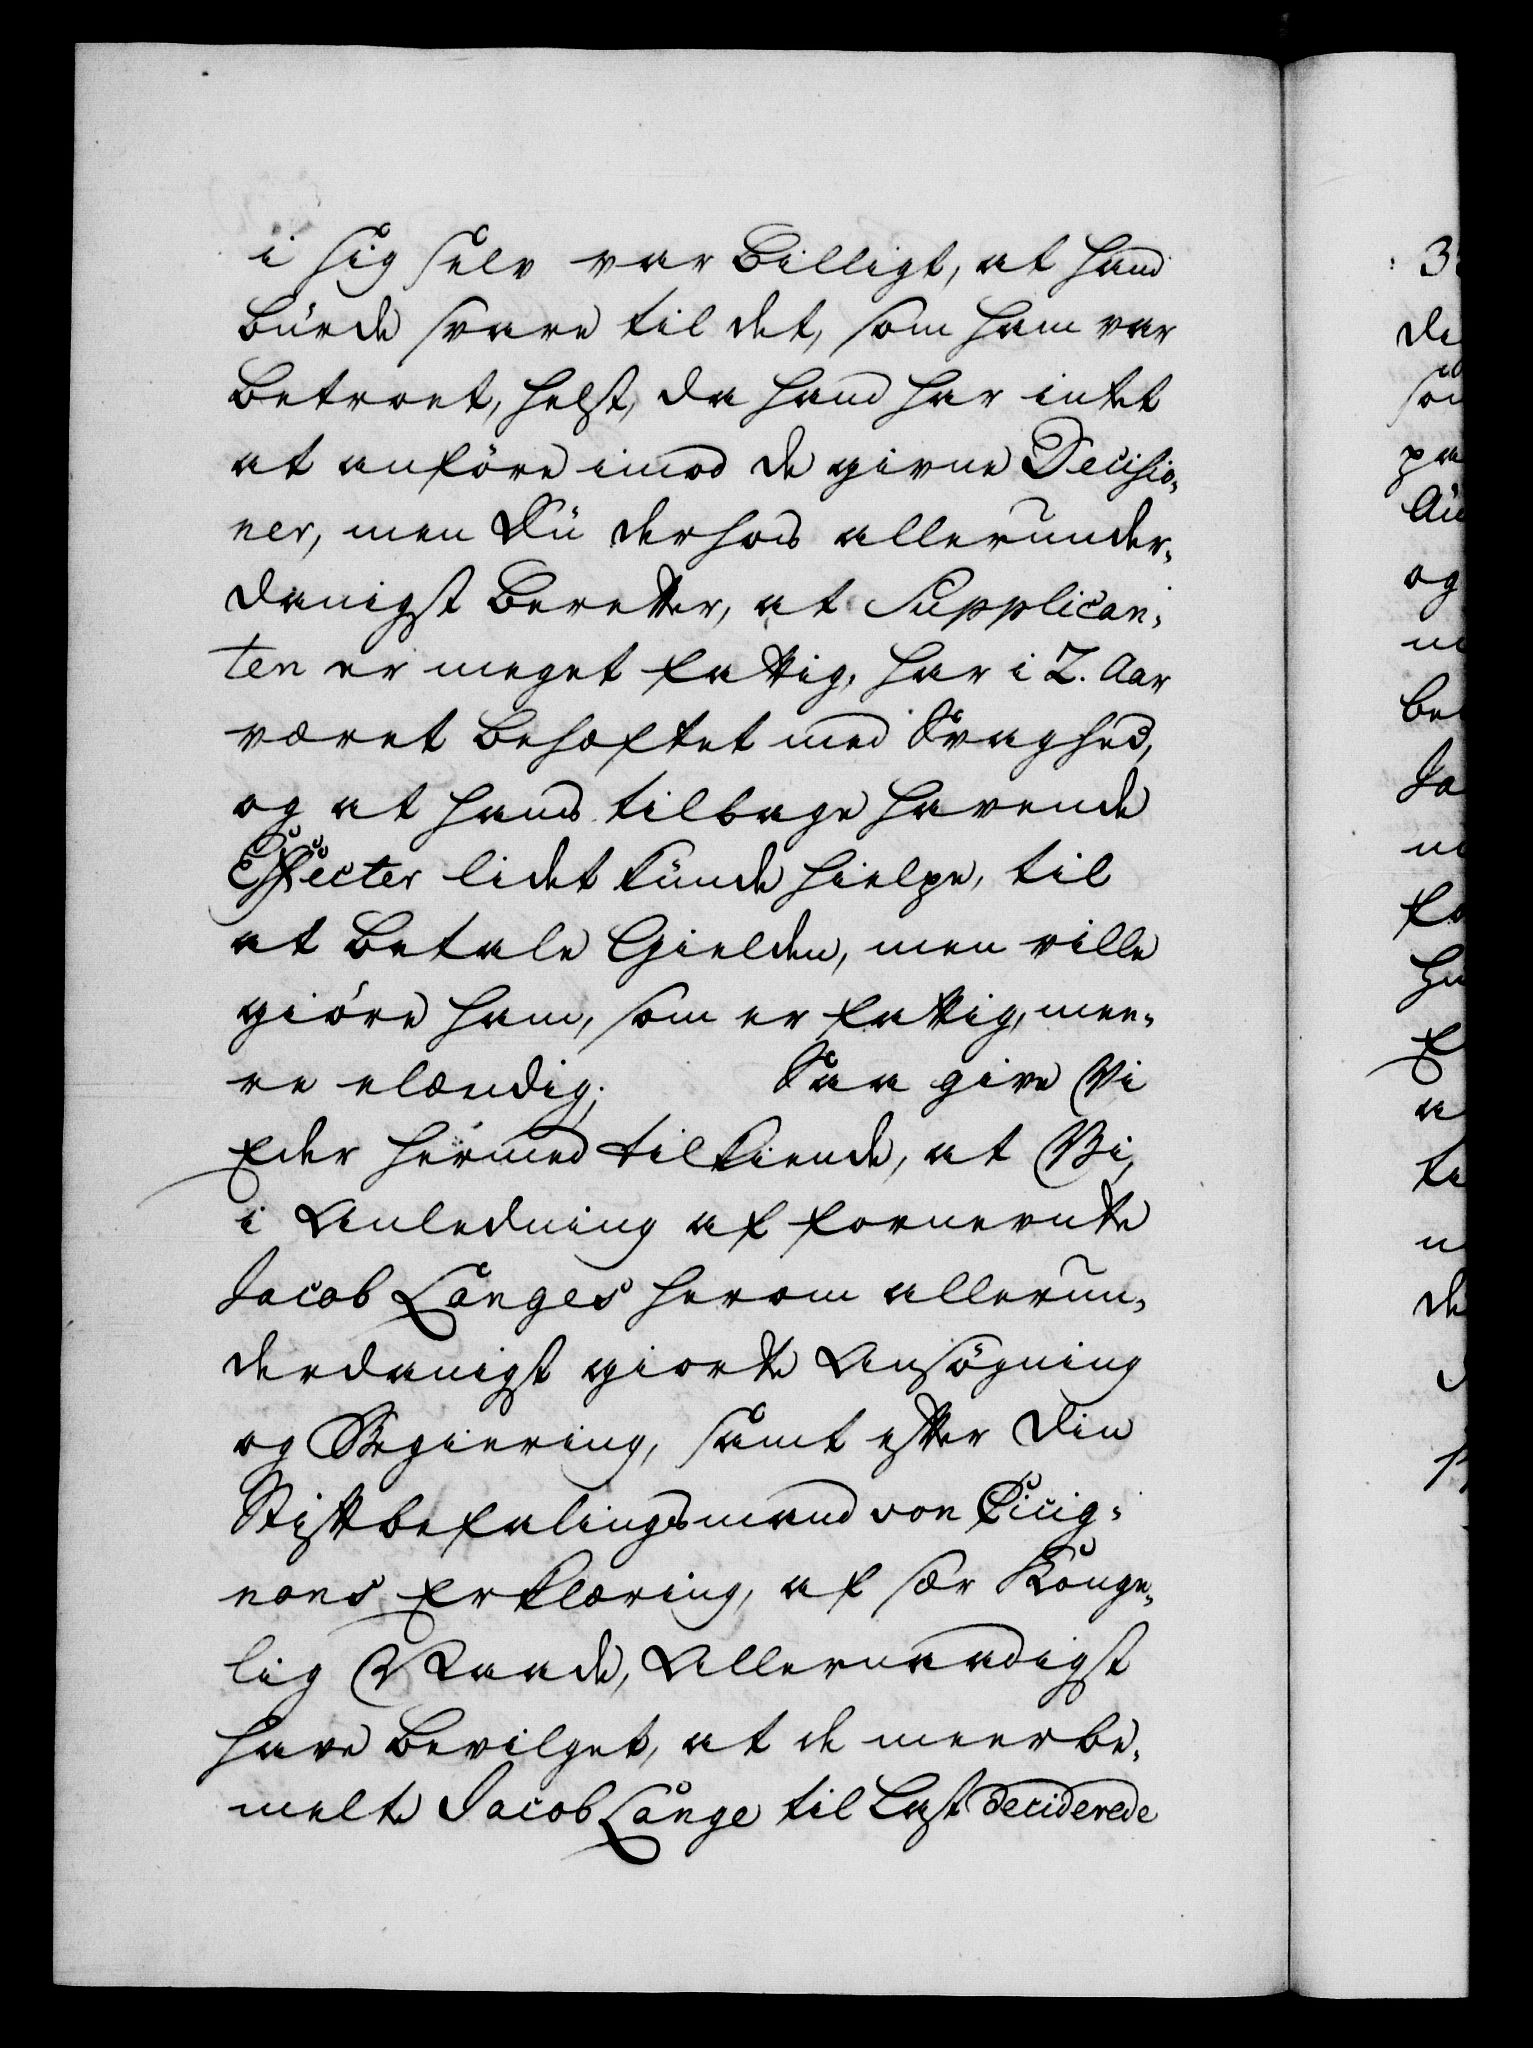 i sig selv var Billigt, at hand
burde svare til det, som ham var
betroet, helst, da hand har intet
at anföre imod de givne Decisio-
ner, men Du derhos allerunder-
danigst Beretter, at Supplican-
ten er meget fattig, har i 2. Aar
været behæftet med Svaghed,
og at hans tilbage havende
Effecter lidet kunde hielpe, til
at betale Gielden, men ville
giöre ham, som er fattig, mee-
re elændig; Saa give Vi
Eder hermed tilkiende, at Vi,
i Anledning af fornevnte
Jacob Langes herom allerun-
derdanigst giorte Ansögning
og Begiering, samt efter Din
Stiftbefalingsmand von Cicig-
nons Erklæring, af sær Konge-
lig Naade, Allernaadigst
have bevilget, at de meerbe-
melte Jacob Lange til Last deciderede
3
De
som
paa
og
be
Ja
de